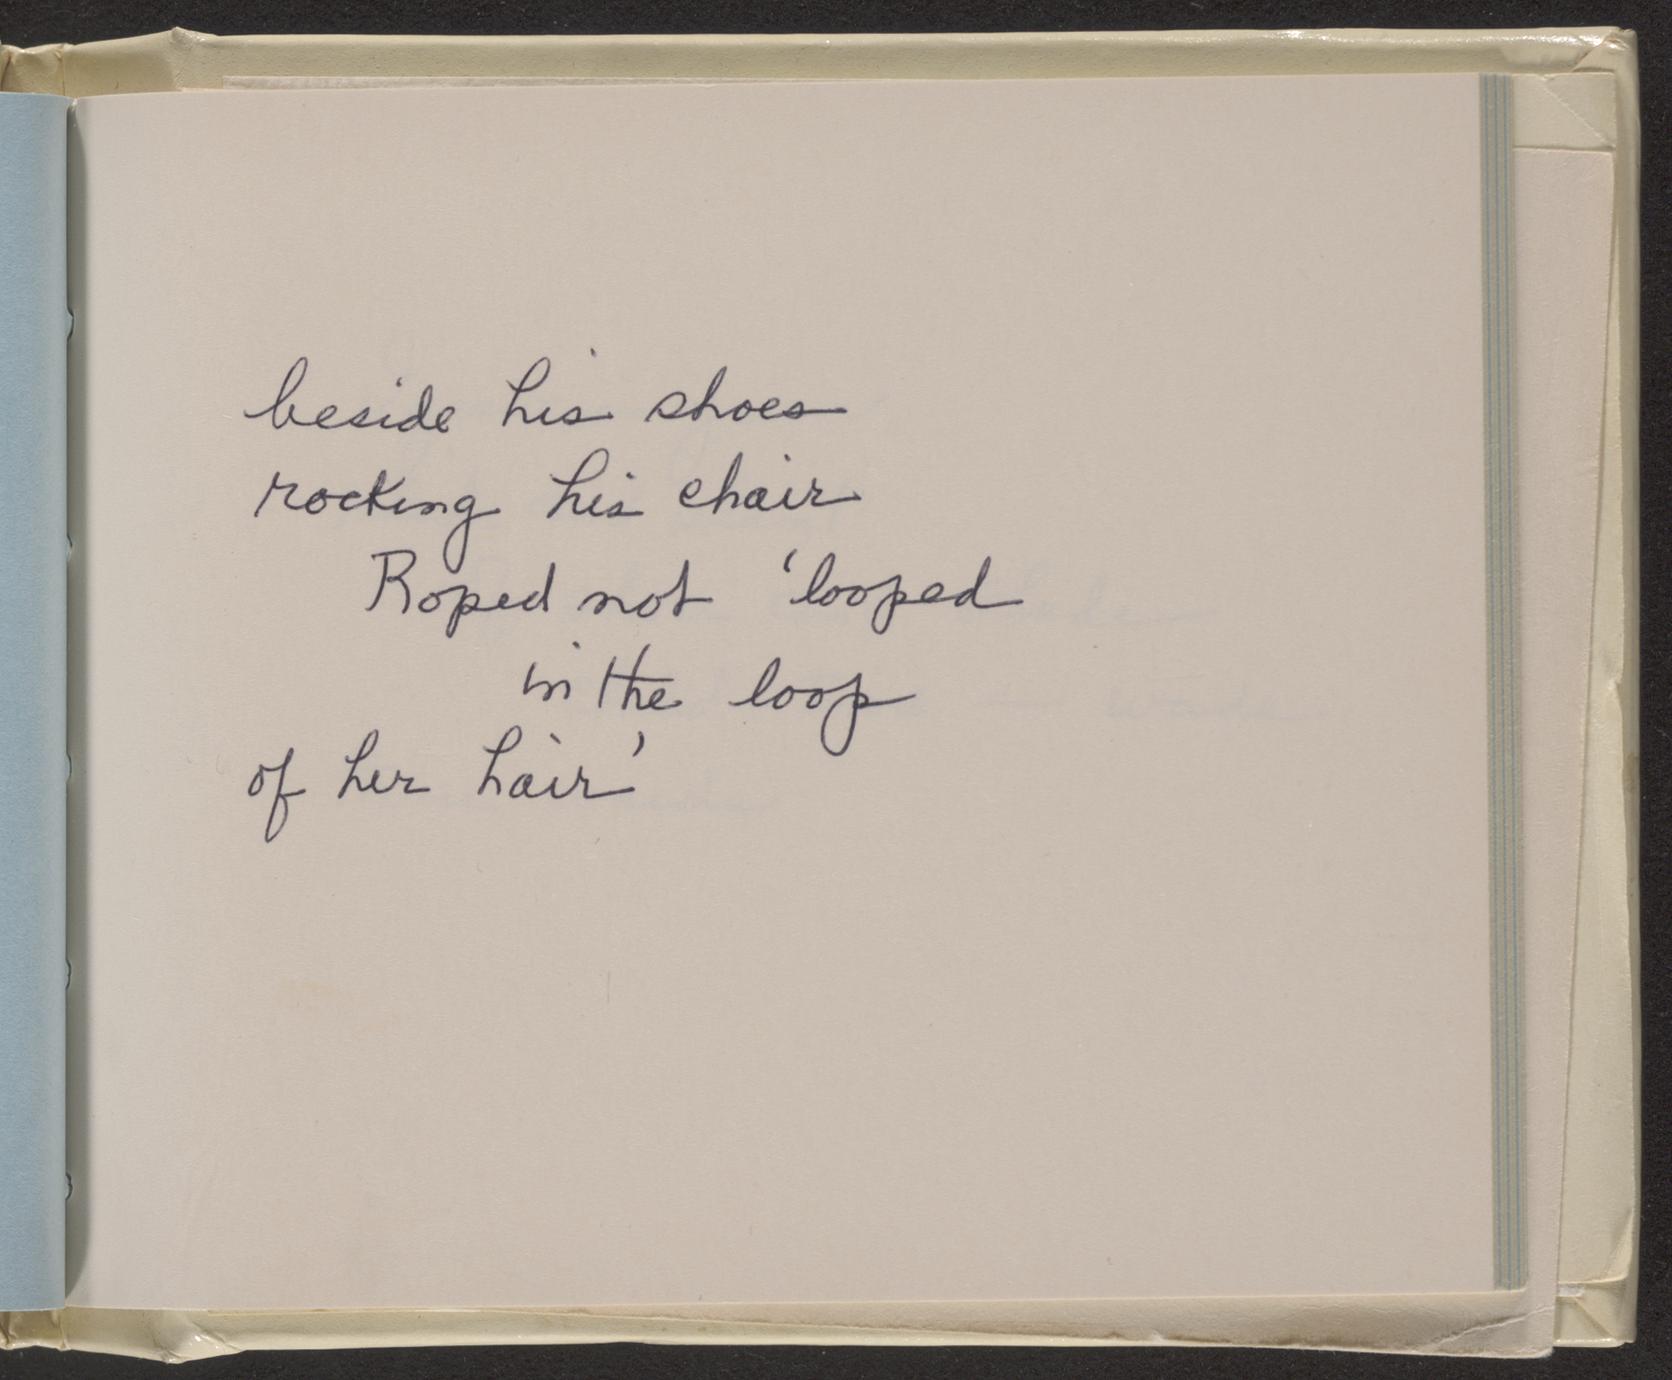 beside his shoes
rocking his chair
Roped not 'looped
in the loop
of her hair'